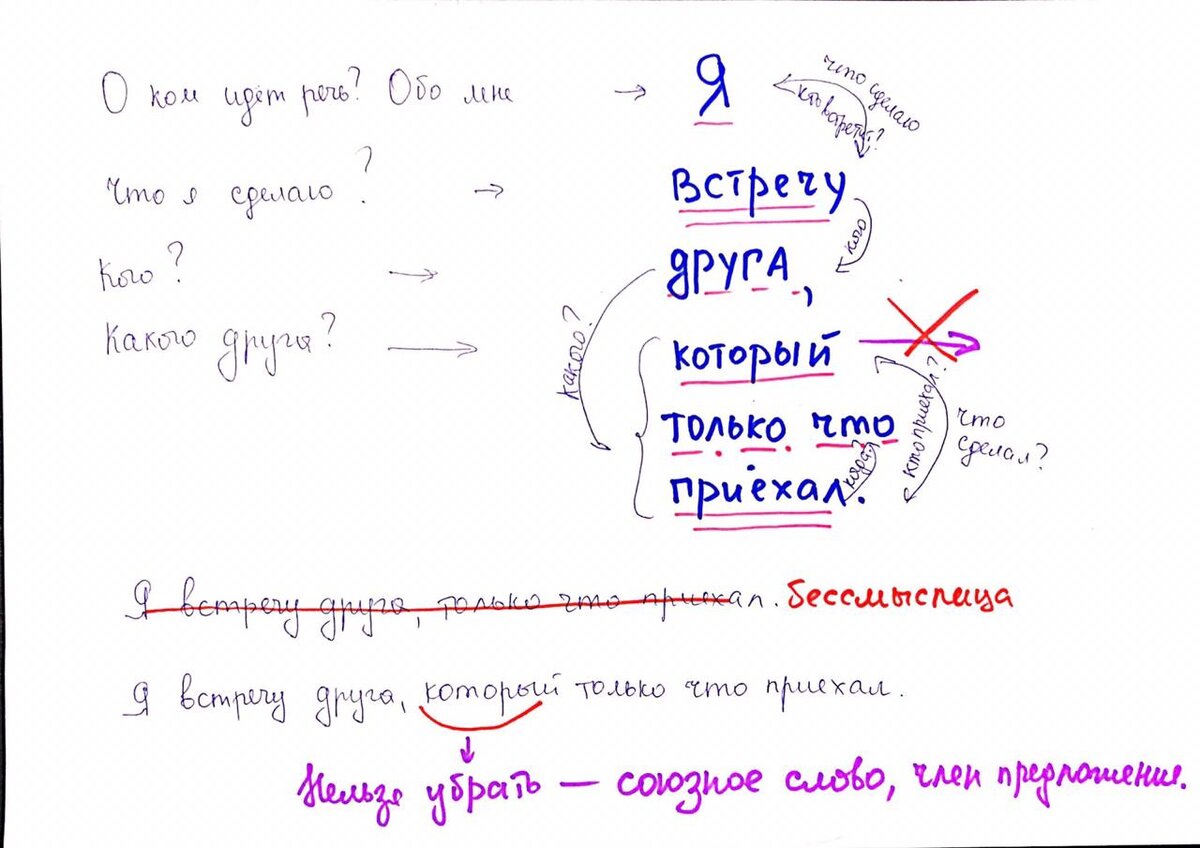 О ком идёт речь? Обо мне → Я
что сделаю
кто встретит?
Что я сделаю? → Встречу
кого
Кого? → друга,
Какого друга? → который
какого?
только что
когда?
приехал.
кто приехал?
что сделал?
Я встречу друга, только что приехал. бессмыслица
Я встречу друга, который только что приехал.
Нельзя убрать — союзное слово, член предложения.